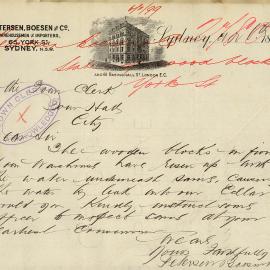 PETERSEN, BOESEN & Co.
WAREHOUSEMEN & IMPORTERS,
65, YORK ST
SYDNEY, N.S.W.
AND 88 BASINGHALL ST. LONDON E.C.
Sydney
wood blocks
York St
The Town Clerk
Town Hall
City
Dear Sir
The wooden blocks in front
our Warehouse have risen up with
the water underneath same, causing
the water to leak into our Cellar
would you Kindly instruct some
officer to inspect same at your
earliest Convenience
We are
Yours Faithfully
Petersen Boesen